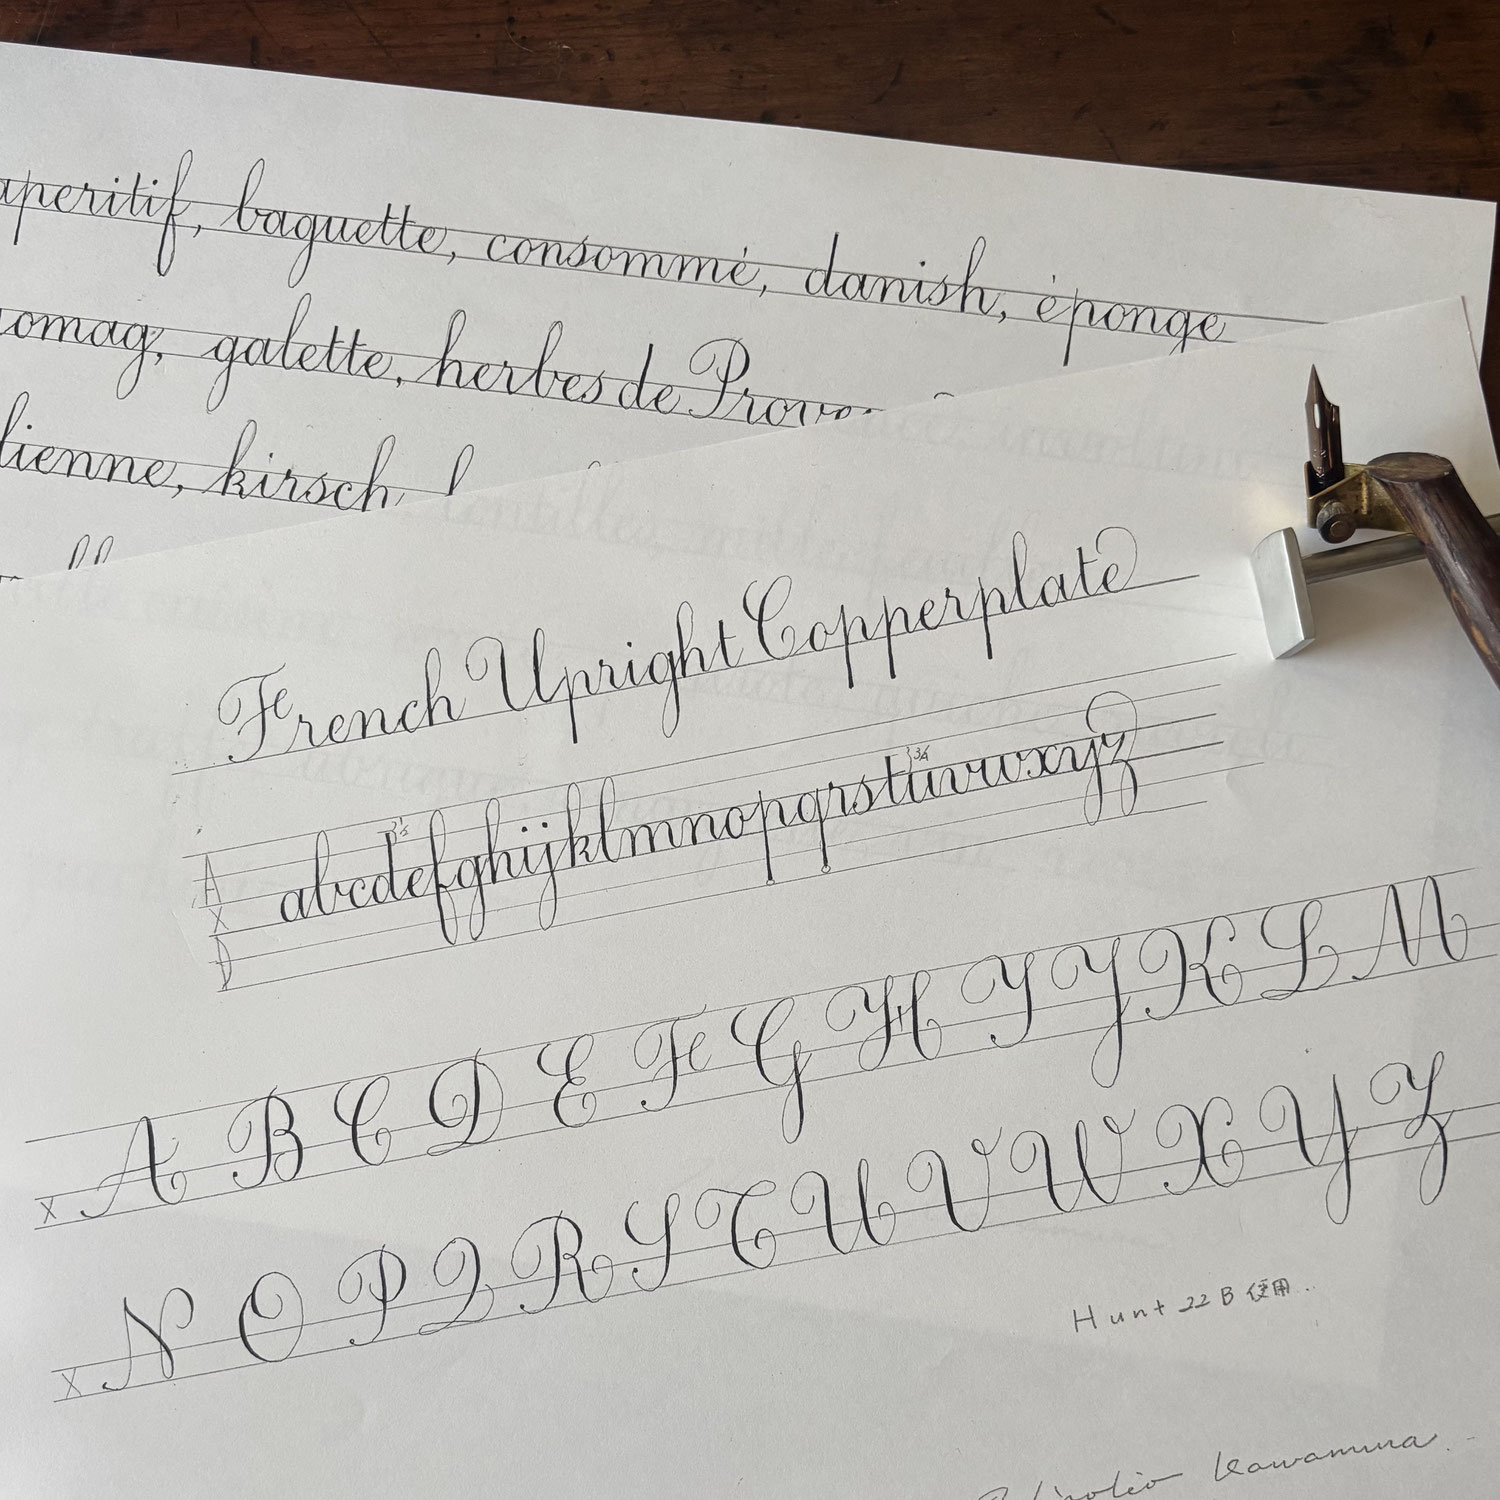 aperitif, baguette, consommé, danish, éponge
galette, herbes de
kirsch
French Upright Copperplate
2½ 2¾
A
X
D
abcdefghijklmnopqrstuvwxyz
A B C D E F G H I J K L M
X
N O P Q R S T U V W X Y Z
X
Hunt 22B使用.
Kawamura